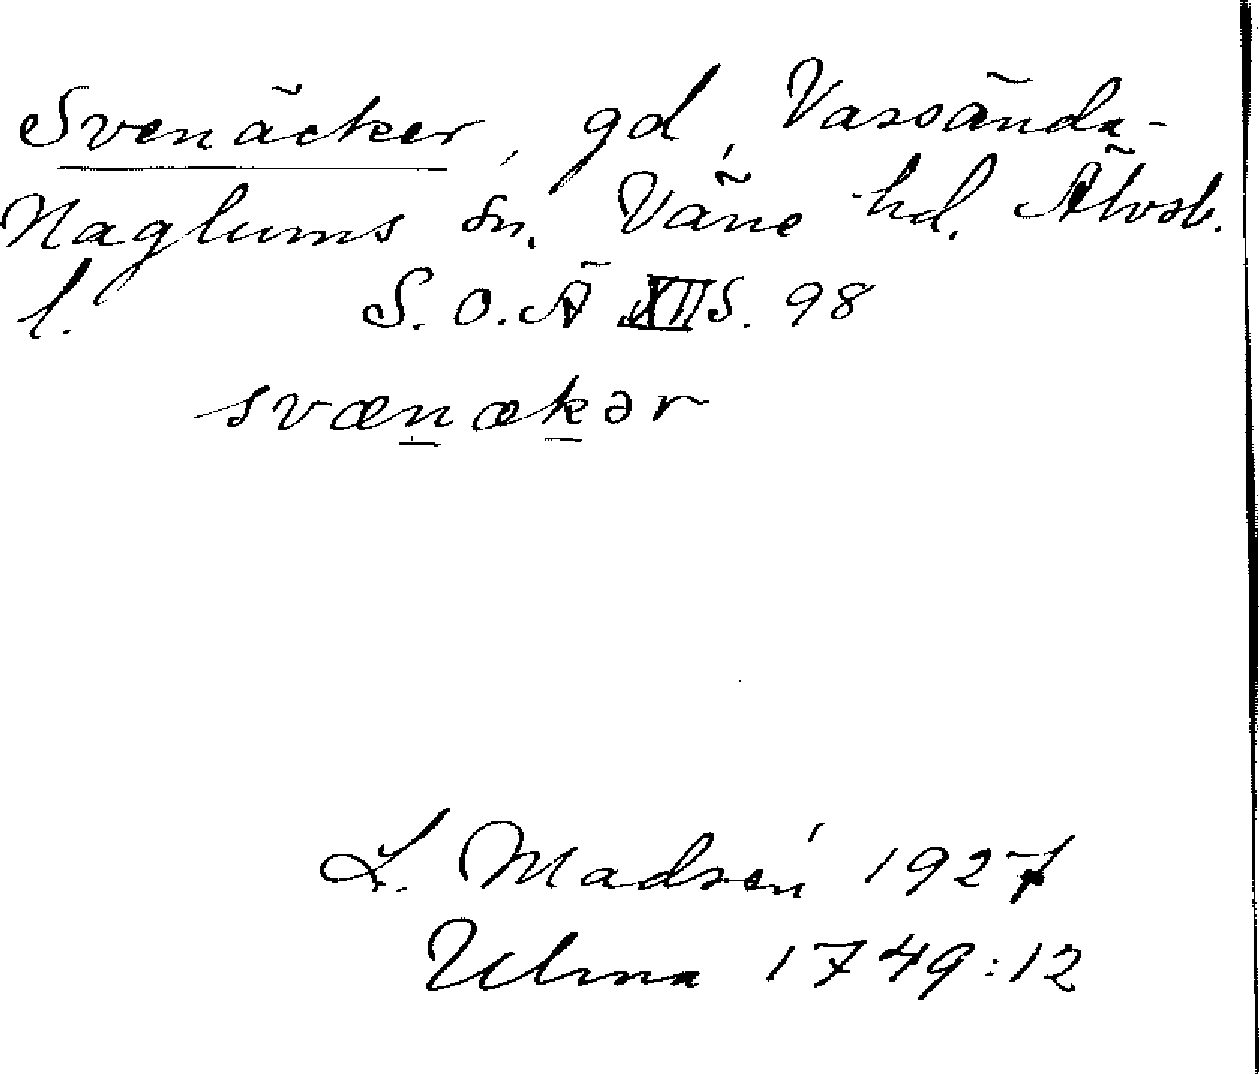 Svenäcker, gd, Vassända-
Naglums sn. Väne hd. Älvsb.
l. S. O. Ä XII S. 98
svænækər
L. Madsén 1927
Ulma 1749:12